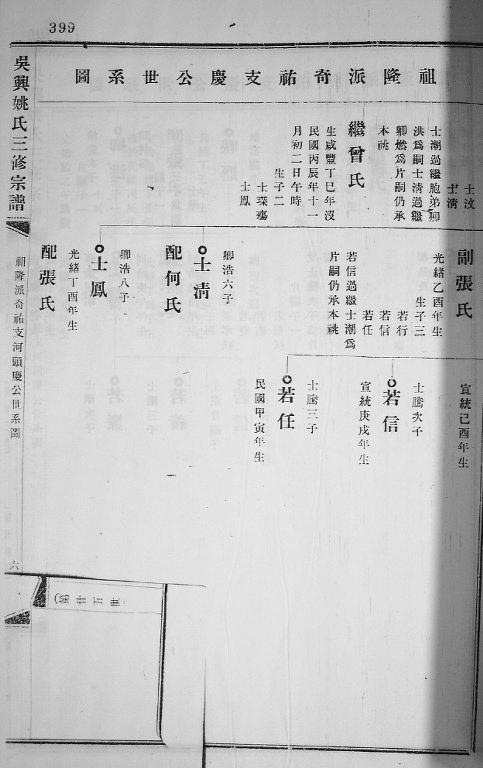 399
祖隆派奇祐支慶公世系圖
士汶
士清
士潮過繼胞弟卿
洪爲嗣士清過繼
卿燃爲片嗣仍承
本祧
繼曾氏
生咸豐丁巳年沒
民國丙辰年十一
月初二日午時
生子二
士璨
士鳳
副張氏
光緒乙酉年生
生子三
若行
若信
若任
若信過繼士潮爲
片嗣仍承本祧
卿浩六子
士清
配何氏
卿浩八子
士鳳
配張氏
光緒丁酉年生
宣統己酉年生
士騰次子
若信
宣統庚戌年生
士騰三子
若任
民國甲寅年生
吳興姚氏三修宗譜
祖隆派奇祐支河頭慶公世系圖
六